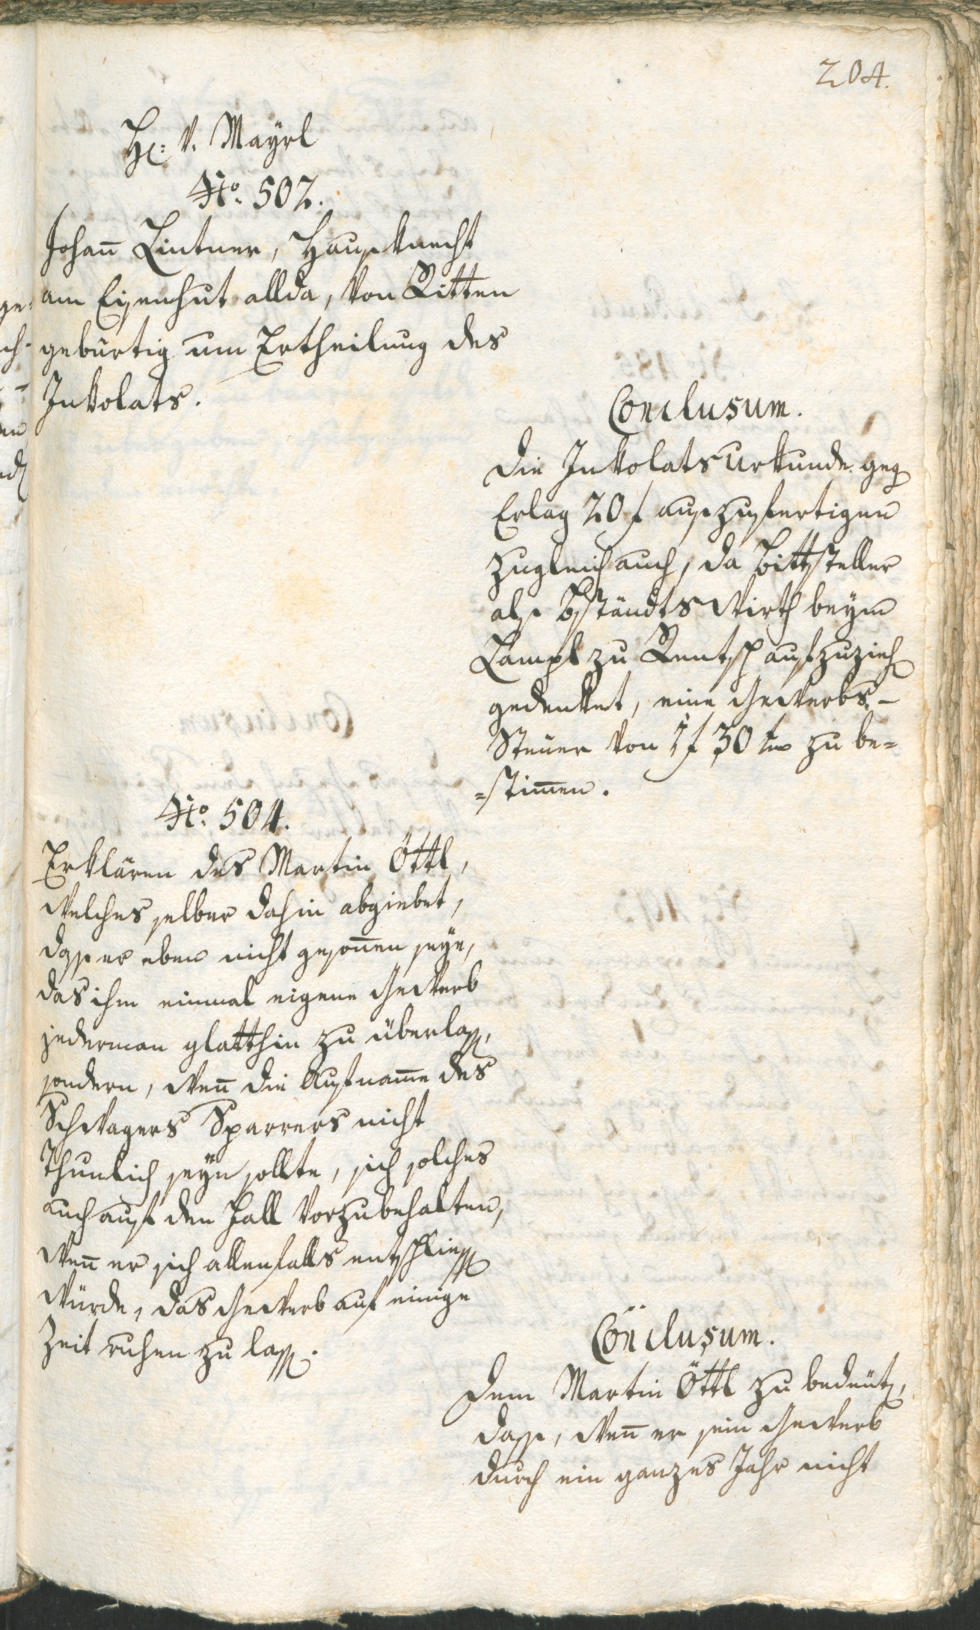 204.
H: v. Mayrl
No. 502.
Johan̄ Lintner, Hausknecht
am Eisenhut allda, von Ritten
gebürtig um Ertheilung des
Inkolats.
Conclusum.
Die Inkolatsurkunde geg
Erlag 20 f auszufertigen
zugleich auch, da Bittsteller
als Bständtswirth beym
Lampl zu Rentsch aufzuzieh
gedenket, eine Gewerbs-
Steuer von 1 f 30 kr zu be=
=stim̄en.
No. 504.
Erklären des Martin Öttl,
welches selber dahin abgiebet,
dass er eben nicht geson̄en seye,
das ihm einmal eigene Gewerb
jederman glatthin zu überlass,
sondern, wen̄ die Aufnam̄e des
Schwagers Sparrers nicht
thunlich seyn sollte, sich solches
auch auf den Fall vorzubehalten,
wen̄ er sich allenfalls entschliess
würde, das Gewerb auf einige
Zeit ruhen zu lass.
Con̄clusum.
Dem Martin Öttl zu bedeut,
dass, wen̄ er sein Gewerb
durch ein ganzes Jahr nicht